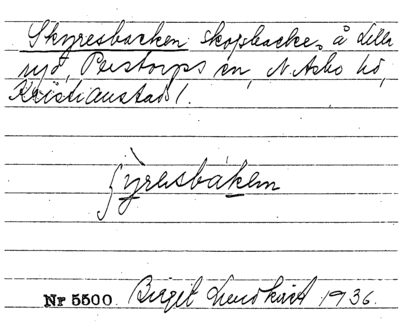 Skyresbacken skogsbacke å Lilla
ryd, Perstorps sn, N. Åsbo hd,
Kristianstad l.
ʃýresbàkem
Nr 5500. Birgit Lundkvist 1936.